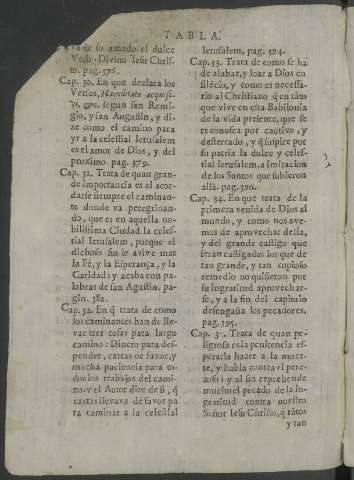 TABLA.
va de su amado el dulce
Verbo Divino Iesu Chris-
to. pag. 376.
Cap. 30. En que declara los
Versos, Hæreditate acquisi-
vi, &c. segun san Remi-
gio, y san Augustin, y di-
ze como el camino para
yr a la celestial Ierusalem
es el amor de Dios, y del
proximo. pag. 379.
Cap. 31. Trata de quan gran-
de importancia es el acor-
darse siempre el caminan-
te donde va peregrinan-
do, que es en aquella no-
bilissima Ciudad la celes-
tial Ierusalem, porque el
dichoso fin le avive mas
la Fè, y la Esperança, y la
Caridad; y acaba con pa-
labras de san Agustin. pa-
gin. 382.
Cap. 32. En q̃ trata de como
los caminantes han de lle-
var tres cosas para largo
camino: Dinero para des-
pender, cartas de favor, y
mucha paciencia para to-
dos los trabajos del cami-
no. y el Autor dize de si, q̃
cartas llevava de favor pa
ra caminar a la celestial
Ierusalem, pag. 394.
Cap. 33. Trata de como se ha
de alabar, y loar a Dios en
silēcio, y como es necessa-
rio al Christiano q̃ en tāto
que vive en esta Babilonia
de la vida presente, que se
reconosca por cautivo, y
desterrado, y q̃ suspire por
su patria la dulce y celes-
tial Ierusalem, a imitacion
de los Santos que subieron
allà. pag. 390.
Cap. 34. En que trata de la
primera venida de Dios al
mundo, y como nos ave-
mos de aprovechar della,
y del grande castigo que
seran castigados los que de
tau grande, y tan copioso
remedio no quisieron por
su ingratitud aprovechar-
se, y a la fin del capitulo
desengaña los pecadores,
pag. 395.
Cap. 35. Trata de quan pe-
ligrosa es la penitencia es-
perarla hazer a la muer-
te, y habla contra el pere-
zoso; y assi reprehende
mucho el pecado de la in-
gratitud contra nuestro
Señor Iesu Christo, q̃ tātos
y tan